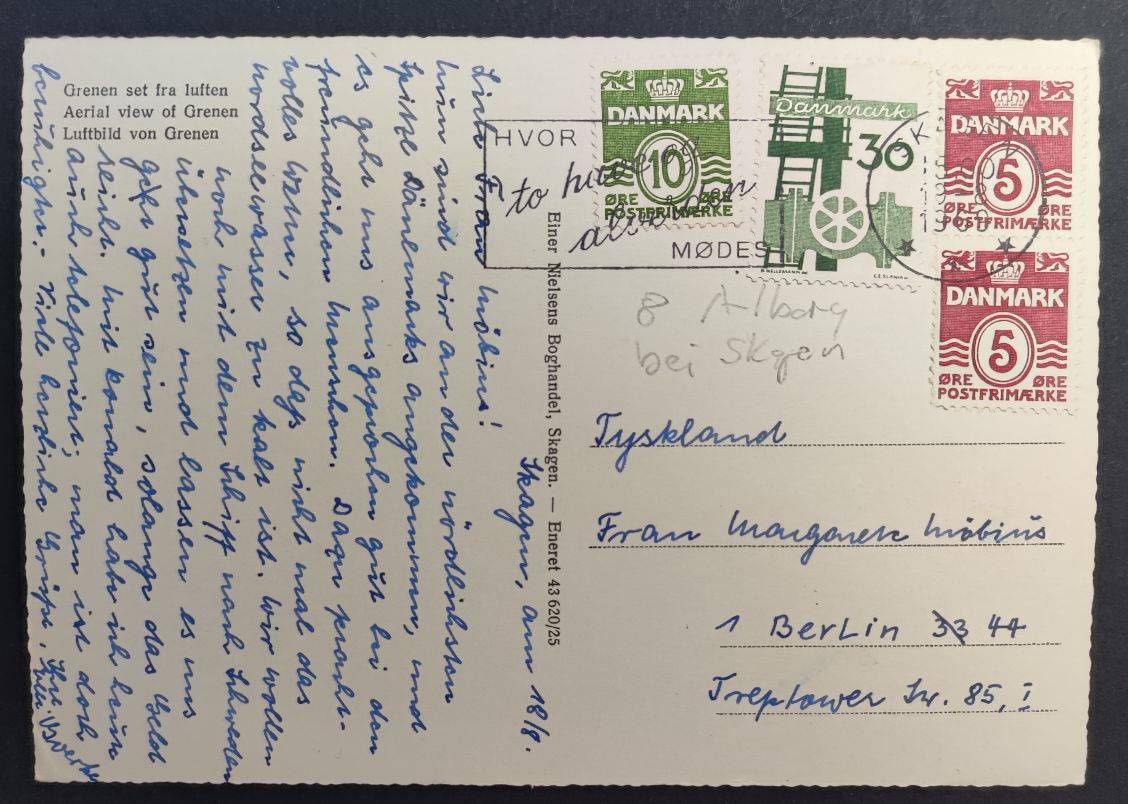 Grenen set fra luften
Aerial view of Grenen
Luftbild von Grenen
HVOR
to have og
MØDES
DANMARK
10
ØRE ØRE
POSTFRIMÆRKE
Danmark
30
SKAGEN
18
1968
DANMARK
5
DANMARK
5
ØRE ØRE
POSTFRIMÆRKE
8 Alborg
bei Skgen
Einer Nielsens Boghandel, Skagen. — Eneret 43 620/25
Skagen, am 18/8.
Liebe Frau Möbius!
Nun sind wir an der nördlichsten
Spitze Dänemarks angekommen, und
es geht uns ausgezeichnet gut bei den
freundlichen Menschen. Dazu pracht-
volles Wetter, so daß nicht mal das
Nordseewasser zu kalt ist. Wir wollen
noch mit dem Schiff nach Schweden
übersetzen und lassen es uns
gut sein, solange das Geld
reicht. Mit Ronald habe ich heute
auch telefoniert, man ist doch
beruhigter. Viele herzliche Grüße, Ihre
Tyskland
Frau Margarete Möbius
1 Berlin 33 44
Treptower Str. 85, I